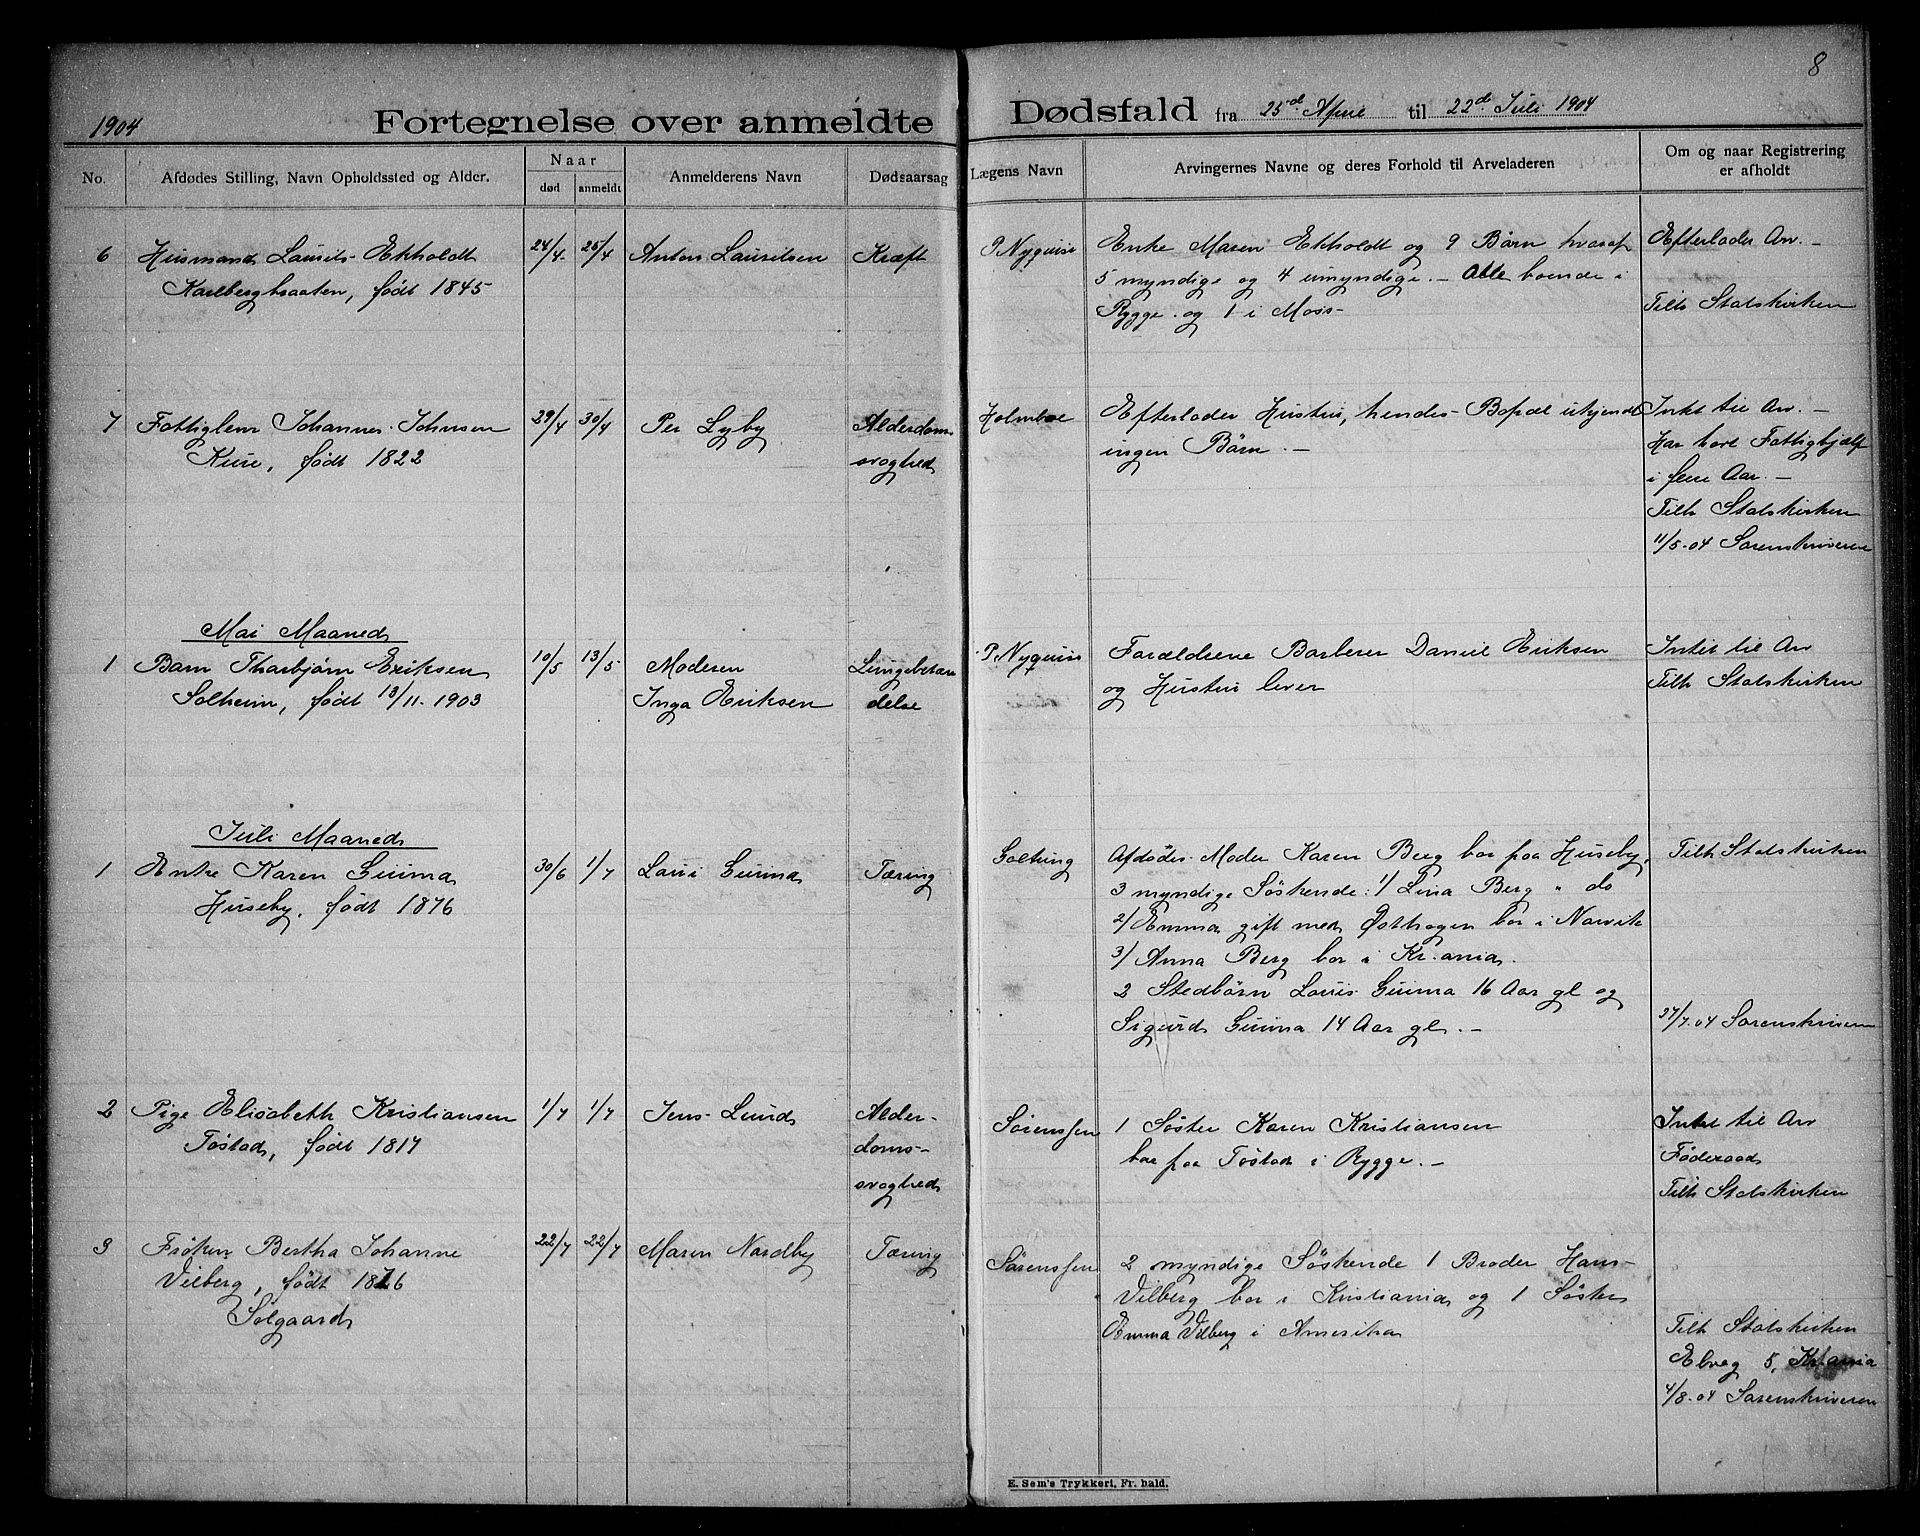 8
1904 Fortegnelse over anmeldte Dødsfald fra 25de April til 22de Juli 1904
No. Afdødes Stilling, Navn Opholdssted og Alder. Naar død anmeldt Anmelderens Navn Dødsaarsag Lægens Navn Arvingernes Navne og deres Forhold til Arveladeren Om og naar Registrering er afholdt
6 Husmand Laurits Ekholdt 24/4 25/4 Anton Lauritsen Kræft P. Nyquist Enke Maren Ekholdt og 9 Børn hvoraf Efterlader Arv. –
Karlberghsaaten, født 1845 5 myndige og 4 umyndige. – Alle boende i
Rygge og 1 i Moss – Tilh Statskirken
7 Fattiglem Johannes Johnsen 29/4 30/4 Per Lyby Alderdoms Holmboe Efterlader Hustru, hendes Bopæl ukjendt Intet til Arv. –
Kure, født 1822 svaghed ingen Børn. – Har havt Fattighjælp
i flere Aar. –
Tilh Statskirken
11/5-04 Sorenskriveren
Mai Maaned
1 Barn Thorbjørn Eriksen 10/5 13/5 Moderen Lungebetæn P. Nyquist Forældrene Barberer Daniel Eriksen Intet til Arv
Solheim, født 13/11-1903 Inga Eriksen delse og Hustru lever Tilh Statskirken
Juli Maaned
1 Enke Karen Guima 30/6 1/7 Lauri Guima Tæring Goltung Afdødes Moder Karen Berg bor paa Huseby, Tilh Statskirken
Huseby, født 1876 3 myndige Søskende: 1/ Lina Berg " do
2/ Emma gift med Østhagen bor i Narvik
3/ Anna Berg bor i Kr.ania.
2 Stedbørn Lauis Guima 16 Aar gl og
Sigurd Guima 14 Aar gl. – 27/7-04 Sorenskriveren
2 Pige Elisabeth Kristiansen 1/7 1/7 Jens Lund Alder- Sørenssen 1 Søster Karen Kristiansen Intet til Arv
Tøstad, født 1817 doms- bor paa Tøstad i Rygge. – Føderaad
svaghed Tilh Statskirken
3 Frøken Bertha Johanne 22/7 22/7 Maren Nordby Tæring Sørenssen 2 myndige Søskende 1 Broder Hans
Vilberg, født 1876 Vilberg bor i Kristiania og 1 Søster
Solgaard Emma Vilberg i Amerika Tilh Statskirken
Elveg 5, Kr.ania
4/8-04 Sorenskriveren
E. Sem's Trykkeri, Fr. hald.